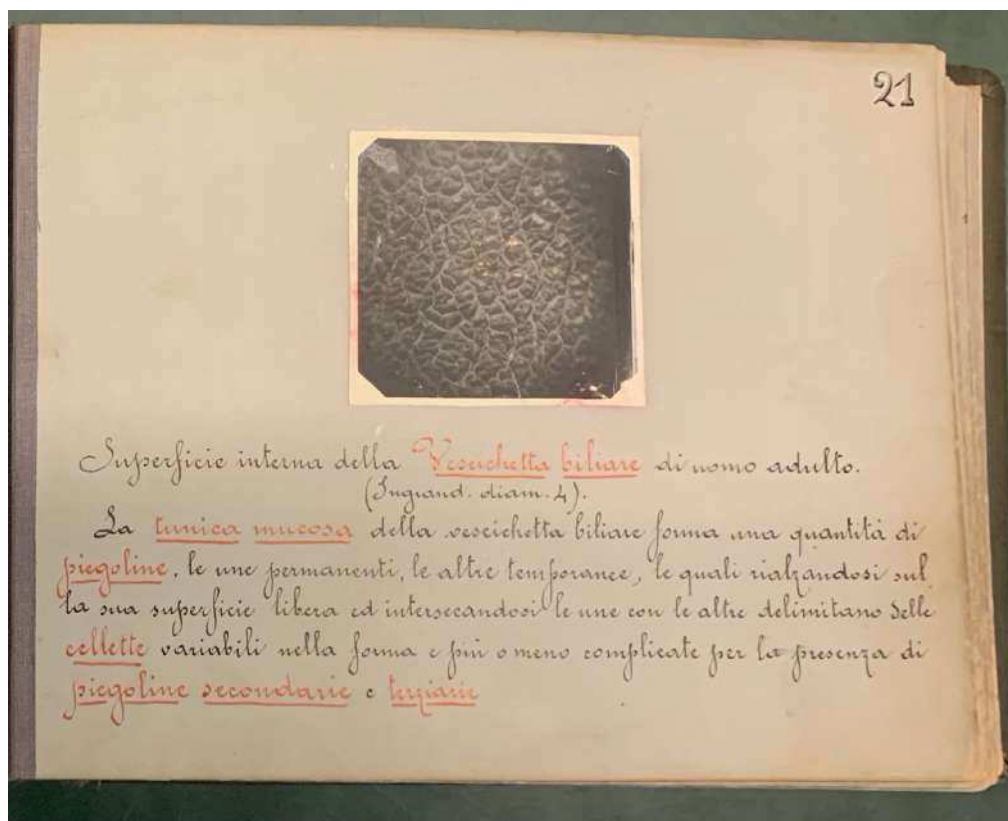 21
Superficie interna della Vescichetta biliare di uomo adulto.
(Ingrand. diam. 4).
La tunica mucosa della vescichetta biliare forma una quantità di
piegoline, le une permanenti, le altre temporanee, le quali rialzandosi sul
la sua superficie libera ed intersecandosi le une con le altre delimitano delle
cellette variabili nella forma e più o meno complicate per la presenza di
piegoline secondarie e terziarie